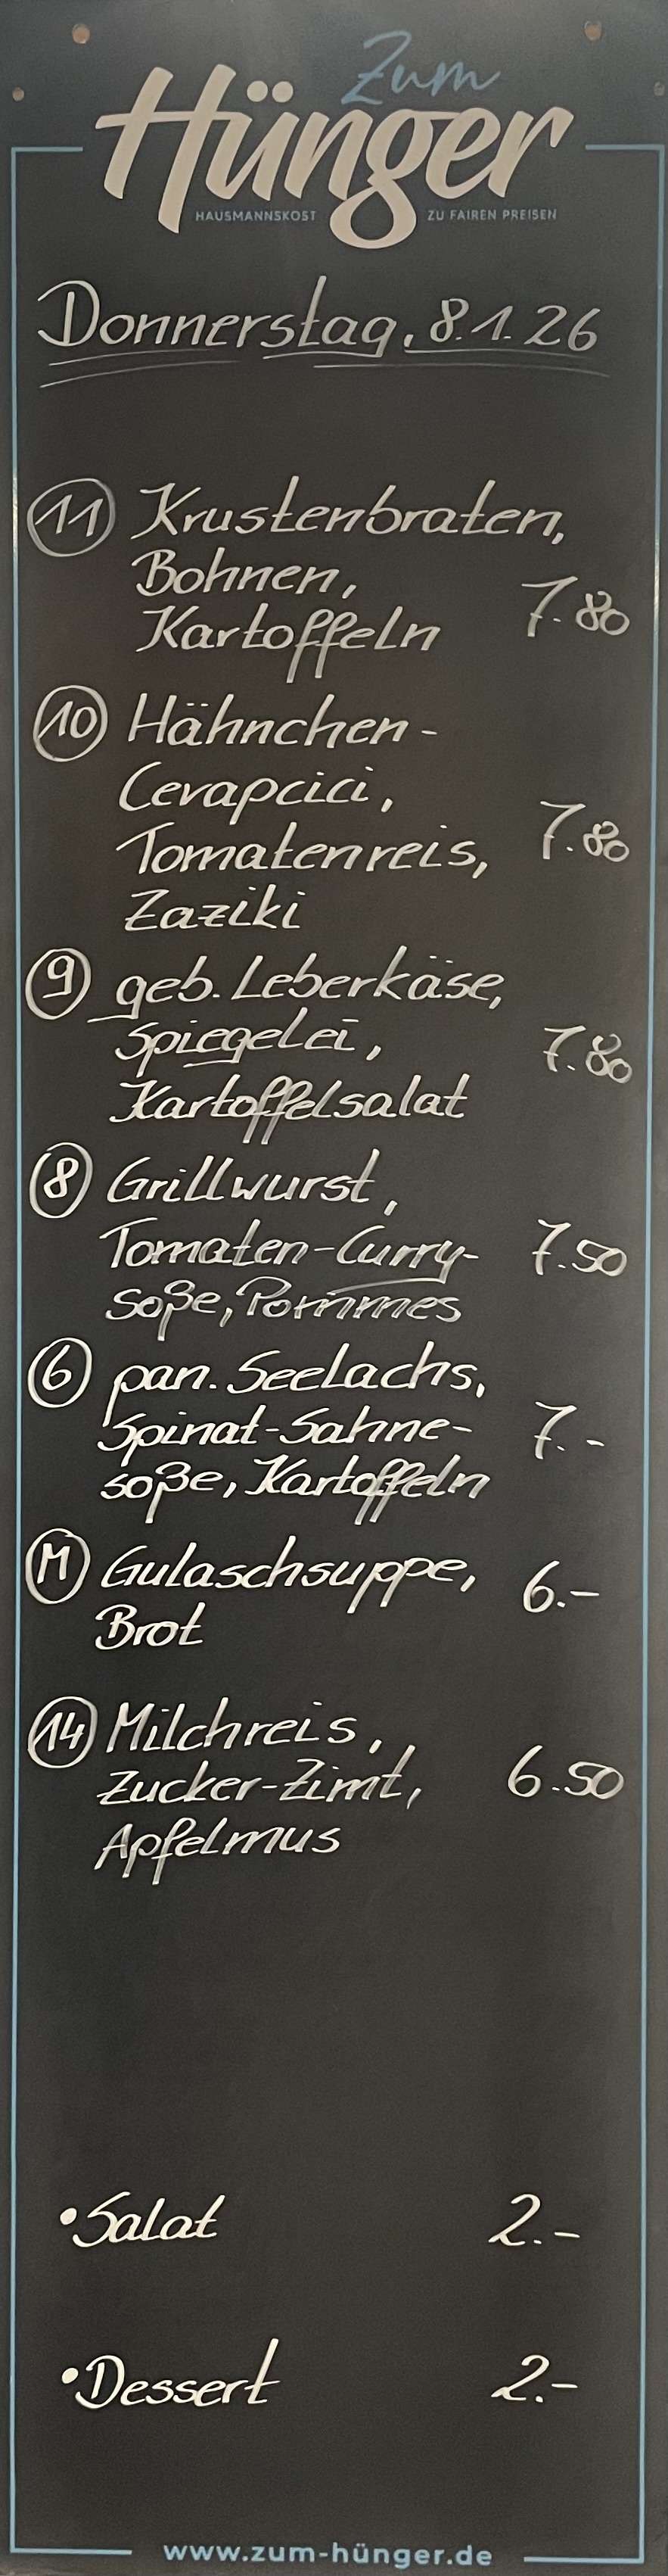 Zum
Hünger
HAUSMANNSKOST ZU FAIREN PREISEN
Donnerstag, 8.1.26
11 Krustenbraten,
Bohnen,
Kartoffeln 7.80
10 Hähnchen-
Cevapcici,
Tomatenreis, 7.80
Zaziki
9 geb. Leberkäse,
Spiegelei, 7.80
Kartoffelsalat
8 Grillwurst,
Tomaten-Curry- 7.50
soße, Pommes
6 pan. Seelachs,
Spinat-Sahne- 7.-
soße, Kartoffeln
M Gulaschsuppe, 6.-
Brot
14 Milchreis,
Zucker-Zimt, 6.50
Apfelmus
•Salat 2.-
•Dessert 2.-
www.zum-hünger.de